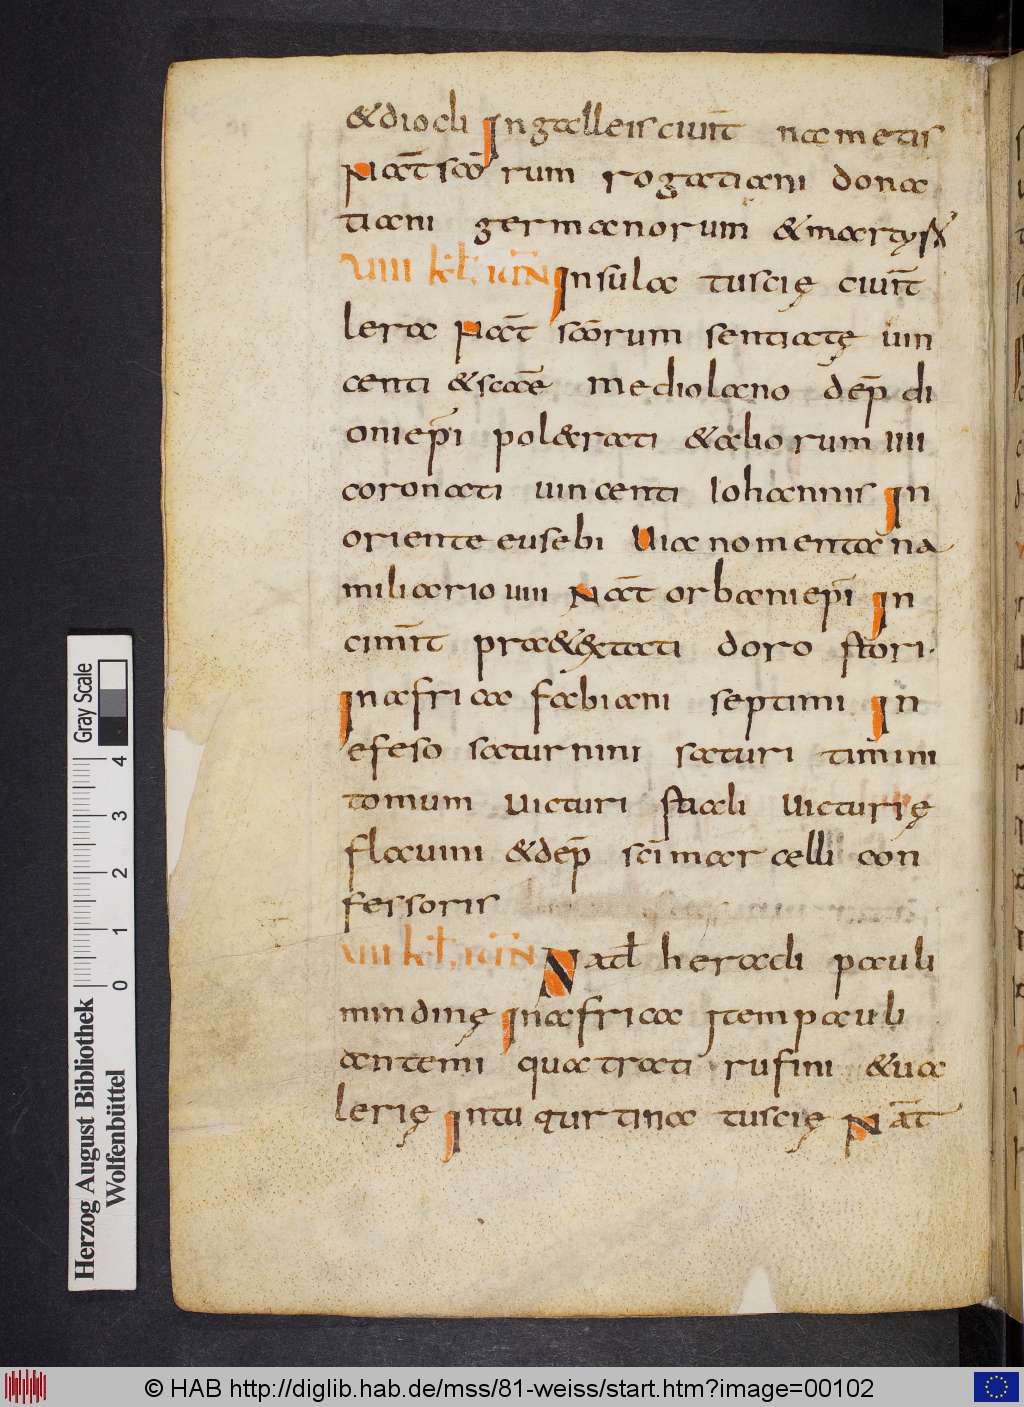 &diocli In galleis ciuit̄ nametis
Nat̄ scō rum rogatiani dona
tiani germanorum & martyrū
VIIII kl̄. iūn̄ Insula tuscię ciuit̄
lera Nat̄ scōrum sentiatę uin
centi & scāae mediolano dep̄ di
oni ep̄i pol&rati & abiorum IIII
coronati uincenti Iohannis In
oriente eusebi Uia nomentana
miliario uiii Nat̄ orbani ep̄i In
ciuit̄ pra&extati doro stori.
In africa fabiani septimi In
efeso saturnini saturi timini
tomum uicturi staali uicturię
flauini & dep̄ sc̄i marcelli con
fessoris
VIII kl̄. iūn̄ Natl̄ heradi pauli
mindinę In africa Item pauli
antemi quatrati rufini & ua
lerię In tuqurtina tuscię Nat̄
Herzog August Bibliothek
Wolfenbüttel
0 1 2 3 4
Gray Scale
© HAB http://diglib.hab.de/mss/81-weiss/start.htm?image=00102